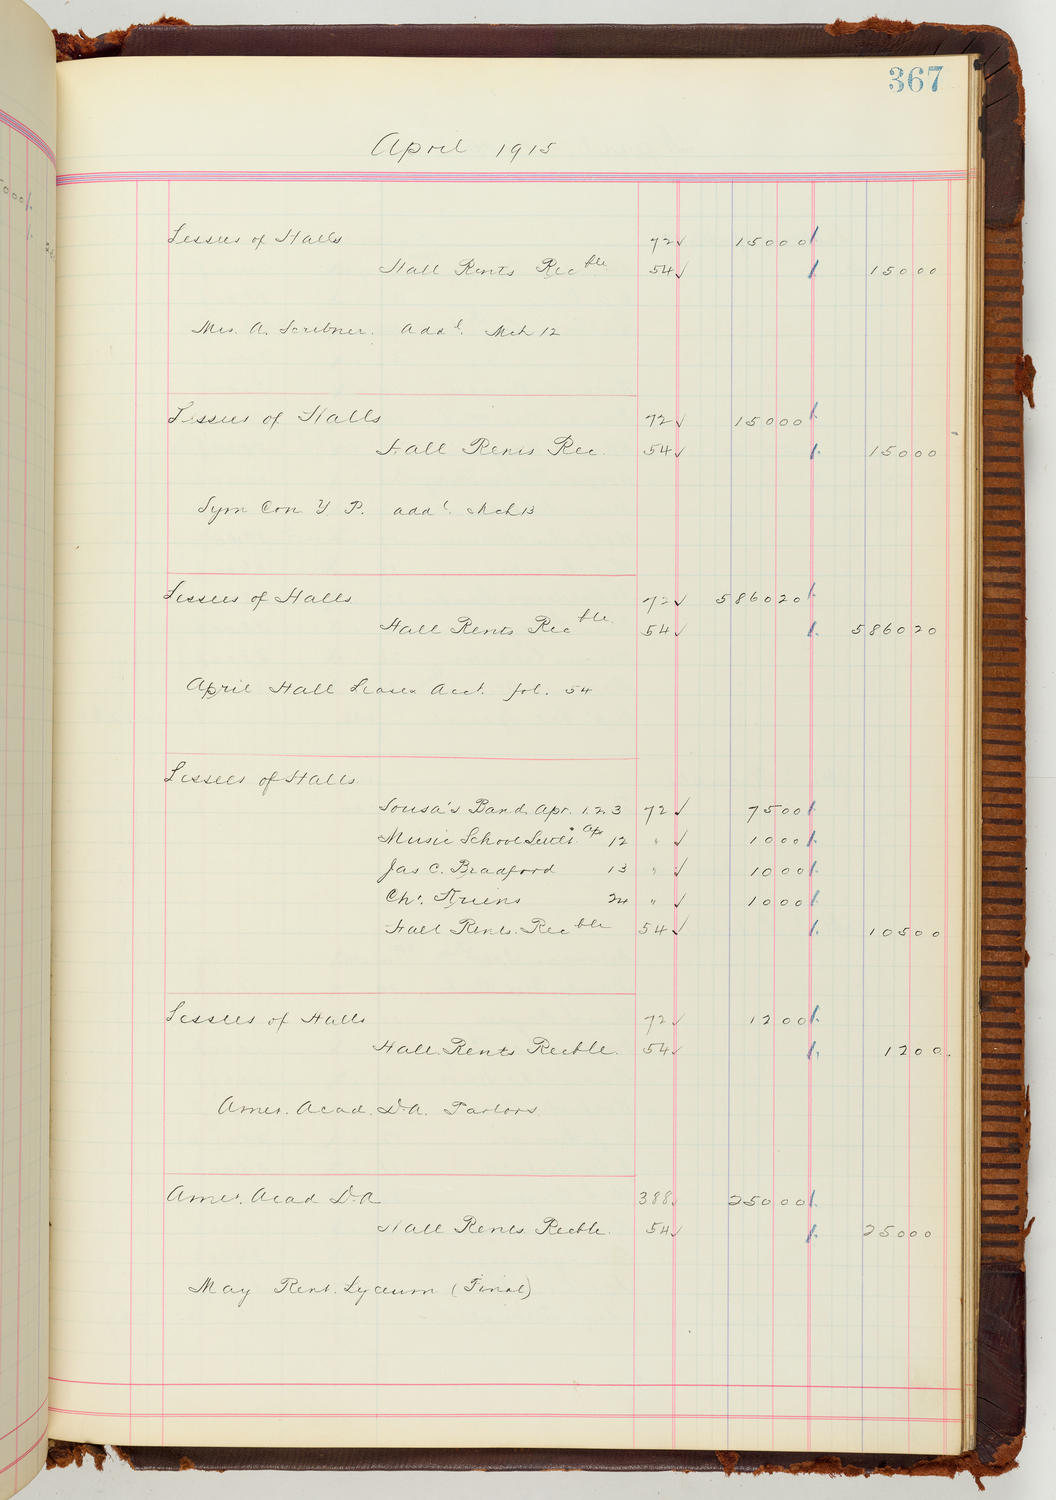 367
April 1915
Lessees of Halls 72 ✓ 15000
Hall Rents Rec ble 54 ✓ 15000
Mrs. A. Scribner. add l. Mch 12
Lessees of Halls 72 ✓ 15000
Hall Rents Rec. 54 ✓ 15000
Sym Con Y P. add l. Mch 13
Lessees of Halls 72 ✓ 586020
Hall Rents Rec ble 54 ✓ 586020
April Hall Leases Acct. fol. 54
Lessees of Halls
Sousa's Band Apr. 1. 2. 3 72 ✓ 7500
Music School Settl. Apr 12 " ✓ 1000
Jas C. Bradford 13 " ✓ 1000
Chr. 24 " ✓ 1000
Hall Rents. Rec ble 54 ✓ 10500
Lessees of Halls 72 ✓ 1200
Hall Rents Recble. 54 ✓ 1200.
Amer. Acad. D.A. Parlors
Amer. Acad D.A 388 25000
Hall Rents Recble. 54 ✓ 25000
May Rent. Lyceum (Final)